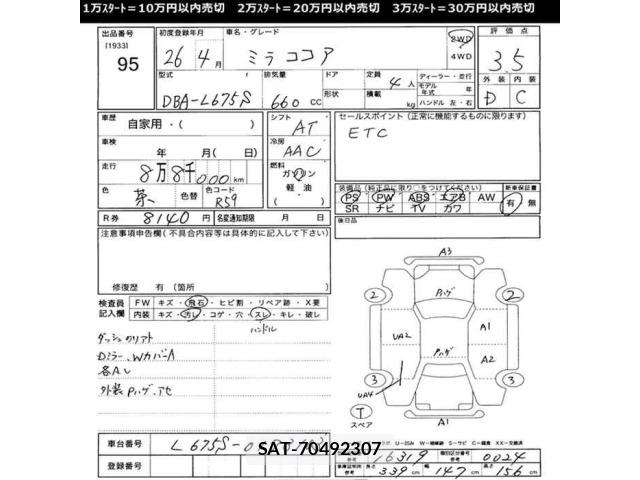 1万スタート=10万円以内売切 2万スタート=20万円以内売切 3万スタート=30万円以内売切
出品番号 初度登録年月 車名・グレード 2WD 評価点
[1933] 26年4月 ミラココア 4WD 3.5
95
型式 排気量 ドア 定員 4人 ディーラー・並行 外装 内装
DBA-L675S 660cc 形状 積載 kg モデル年式 年 D C
ハンドル 左・右
車歴 自家用・( ) シフト AT セールスポイント(正常に機能するものに限ります)
車検 年 月(日) 冷房 AAC ETC
走行 8万8千000km 燃料 ガソリン
軽油
( )
色 茶 色替 色コード R59 装備品(純正品に限り○をつけてください) 新車保証書
PS PW ABS エアB AW 有 無
SR ナビ TV カワ
R券 8140円 名変通知期限 月 日 後日品
注意事項申告欄(不具合内容等は具体的に記入して下さい)
修復歴 有(箇所 )
検査員記入欄 FW キズ・飛石・ヒビ割・リペア跡・X要
内装 キズ・汚レ・コゲ・穴・スレ・キレ・破レ
ハンドル
ダッシュクリアト
Dミラー、WカバーA
各AU
外装Pハゲ、アセ
A3
Pハゲ
2 2
UA2 A1
Pハゲ A2
3 3
UA4
T
スペア
A1
車台番号 L675S-0
SAT-70492307
登録番号
参考 16319 類別区分番号 参考 0024
車庫証明用 参考 長さ 339cm 幅 147cm 高さ 156cm